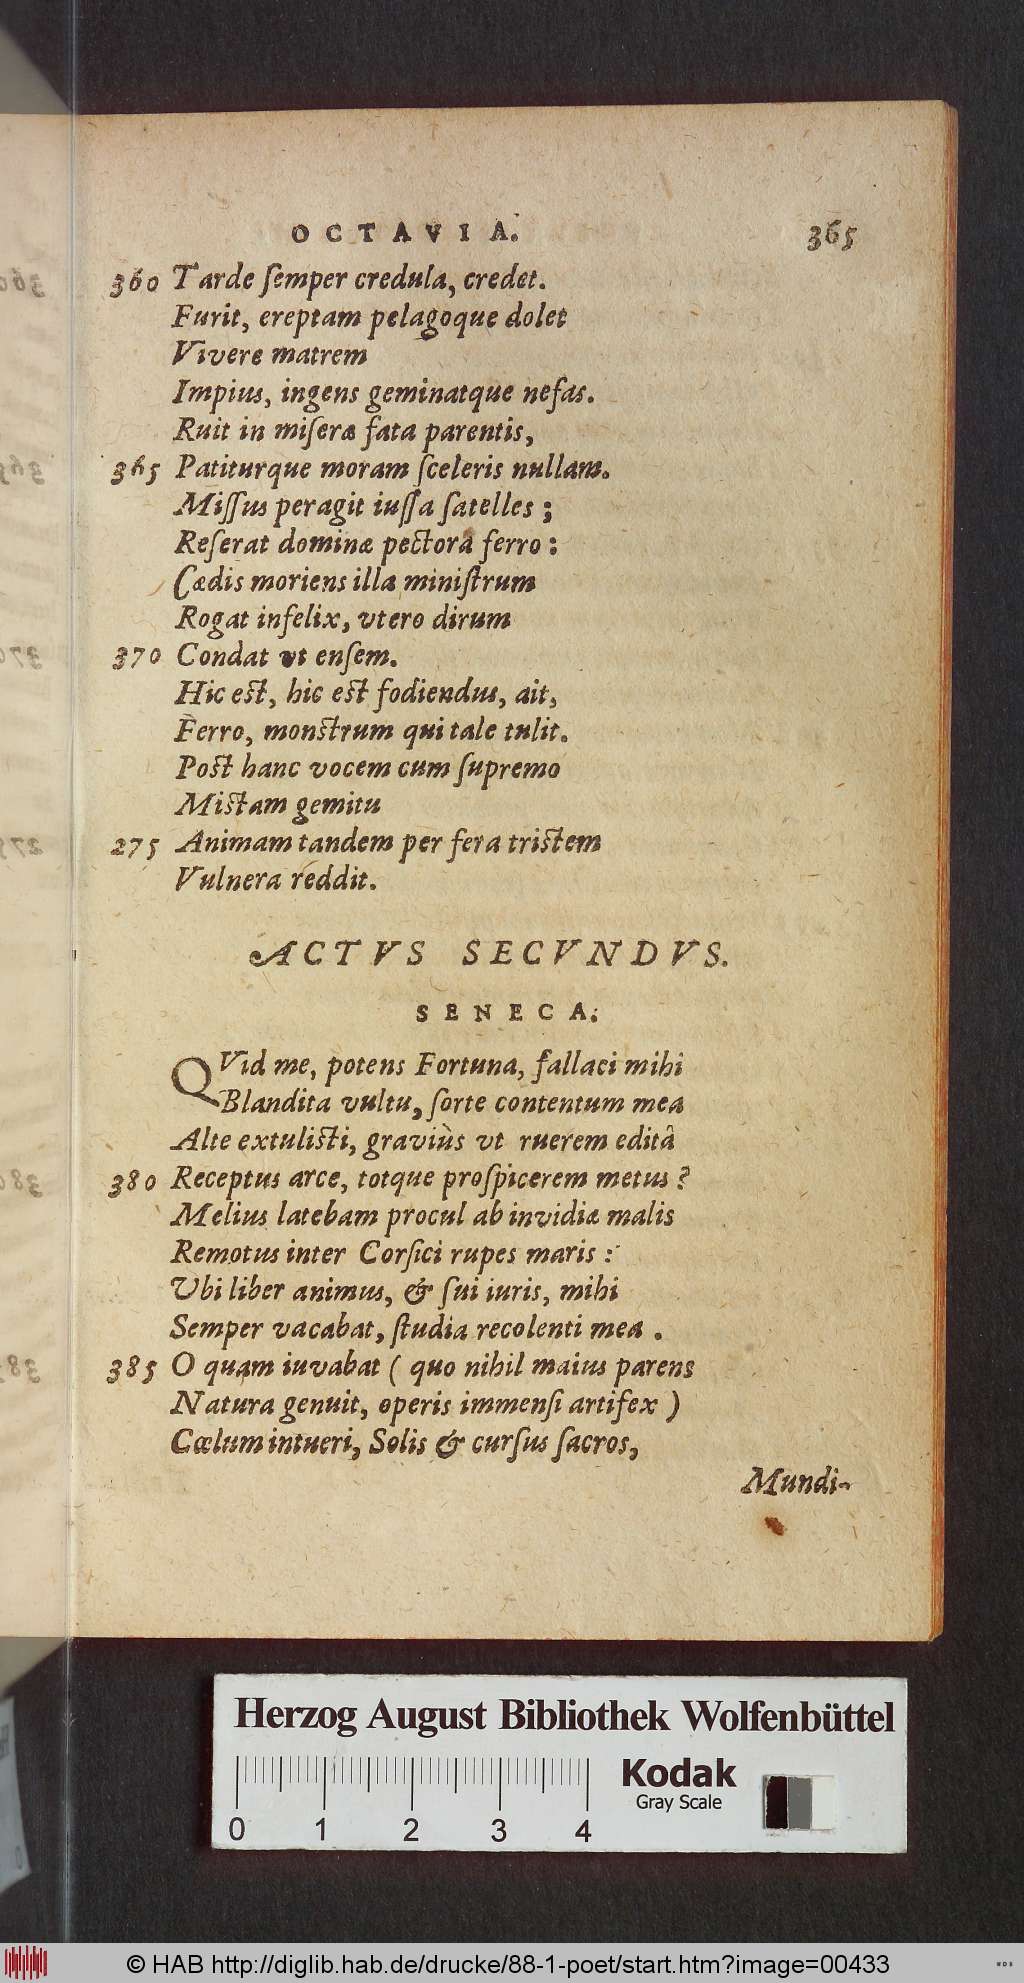 OCTAVIA. 365
360 Tarde ſemper credula, credet.
Furit, ereptam pelagoque dolet
Vivere matrem
Impius, ingens geminatque nefas.
Ruit in miſeræ fata parentis,
365 Patiturque moram ſceleris nullam.
Miſſus peragit iuſſa ſatelles ;
Reſerat dominæ pectora ferro :
Cædis moriens illa miniſtrum
Rogat infelix, vtero dirum
370 Condat vt enſem.
Hic est, hic est fodiendus, ait,
Ferro, monstrum qui tale tulit.
Post hanc vocem cum ſupremo
Mistam gemitu
275 Animam tandem per fera tristem
Vulnera reddit.
ACTVS SECVNDVS.
SENECA.
QVid me, potens Fortuna, fallaci mihi
Blandita vultu, ſorte contentum mea
Alte extulisti, graviùs vt ruerem editâ
380 Receptus arce, totque proſpicerem metus ?
Melius latebam procul ab invidiæ malis
Remotus inter Corſici rupes maris :
Vbi liber animus, & ſui iuris, mihi
Semper vacabat, ſtudia recolenti mea .
385 O quam iuvabat ( quo nihil maius parens
Natura genuit, operis immenſi artifex )
Cœlum intueri, Solis & curſus ſacros,
Mundi-
Herzog August Bibliothek Wolfenbüttel
Kodak
Gray Scale
0 1 2 3 4
© HAB http://diglib.hab.de/drucke/88-1-poet/start.htm?image=00433